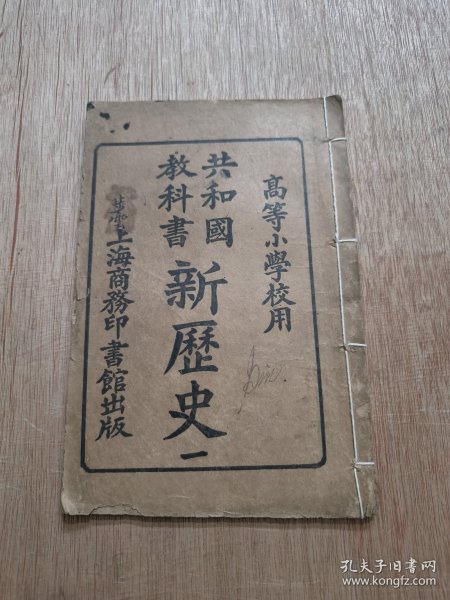 高等小學校用
共和國
教科書
新歷史 一
上海商務印書館出版
孔夫子旧书网
www.kongfz.com